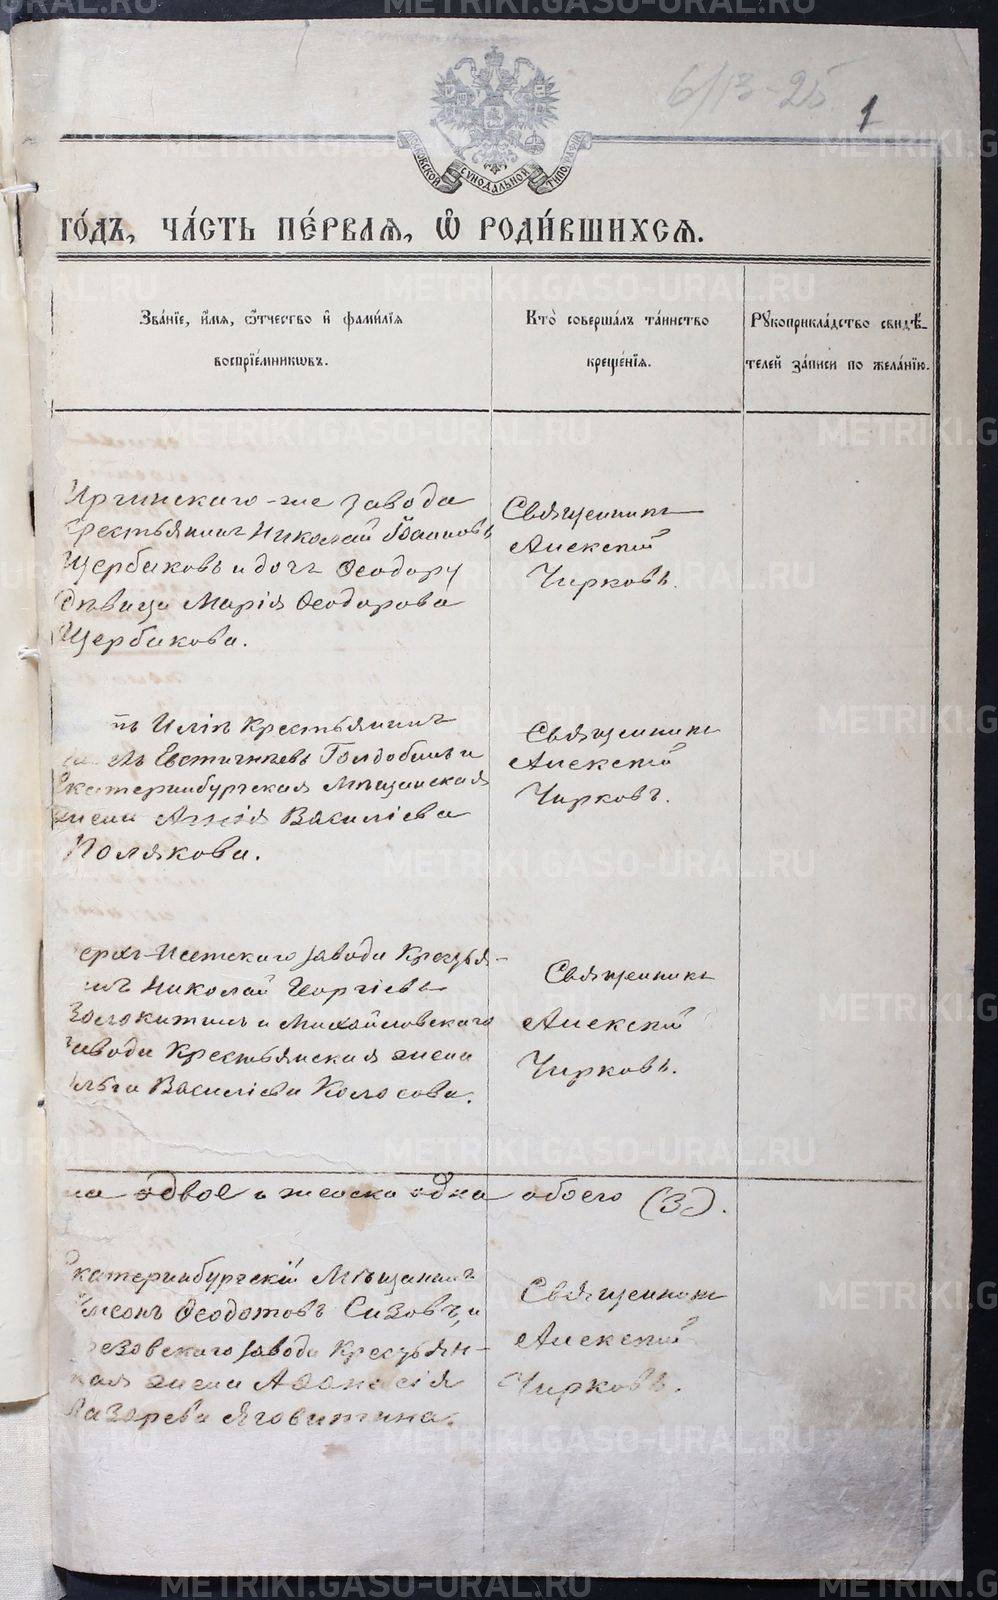 6/13-25
1
МОСКОВСКОЙ СѴНОДАЛЬНОЙ ТИПОГРАФІИ
ГО́ДЪ, ЧА́СТЬ ПЕ́РВАѦ, Ѽ РОДИ́ВШИХСѦ.
Зва́нїе, и҆́мѧ, ѻ҆́тчество и҆ фами́лїѧ
воспрїе́мникѡвъ.
Кто̀ соверша́лъ та́инство
креще́нїѧ.
Рꙋкоприкла́дство свидѣ́-
телей за́писи по жела́нїю.
Иргинскаго-же завода
крестьянинъ Николай Іоанновъ
Щербаковъ и дочь Ѳеодору
Дѣвица Марія Ѳеодорова
Щербакова.
Священникъ
Алексій
Чирковъ.
Крестьянинъ
Евстигнѣевъ Голдобинъ и
Екатеринбургская Мѣщанская
жена Васильева
Полякова.
Священникъ
Алексій
Чирковъ.
ерхъ-Исетскаго завода Крестья-
инъ Николай Георгіевъ
Золокитинъ и Михайловскаго
завода Крестьянская жена
льга Васильева Колосова.
Священникъ
Алексій
Чирковъ.
на двое а женска одна обоего (3).
Екатеринбургскій Мѣщанинъ
Ѳеодотовъ Сизовъ, и
резовскаго завода Крестьян-
кая жена Аѳанасія
Лазарева Яговитина.
Священникъ
Алексій
Чирковъ.
METRIKI.GASO-URAL.RU